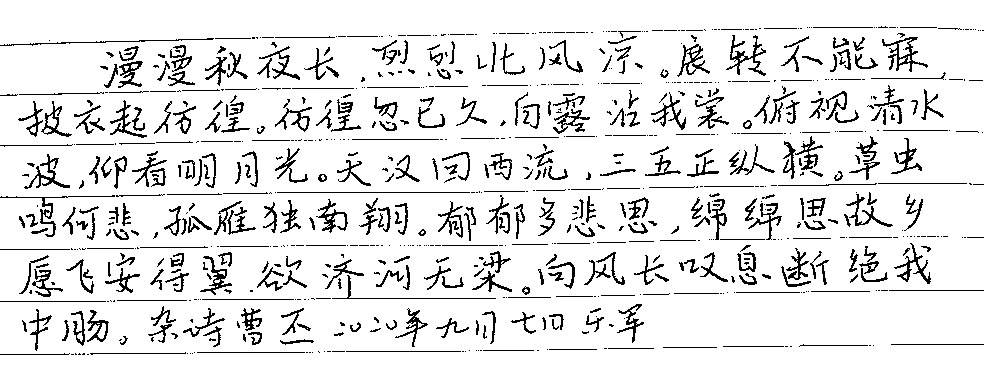 漫漫秋夜长,烈烈北风凉。展转不能寐,
披衣起彷徨。彷徨忽已久,白露沾我裳。俯视清水
波,仰看明月光。天汉回西流,三五正纵横。草虫
鸣何悲,孤雁独南翔。郁郁多悲思,绵绵思故乡
愿飞安得翼,欲济河无梁。向风长叹息断绝我
中肠。杂诗曹丕 2020年九月七日乐军